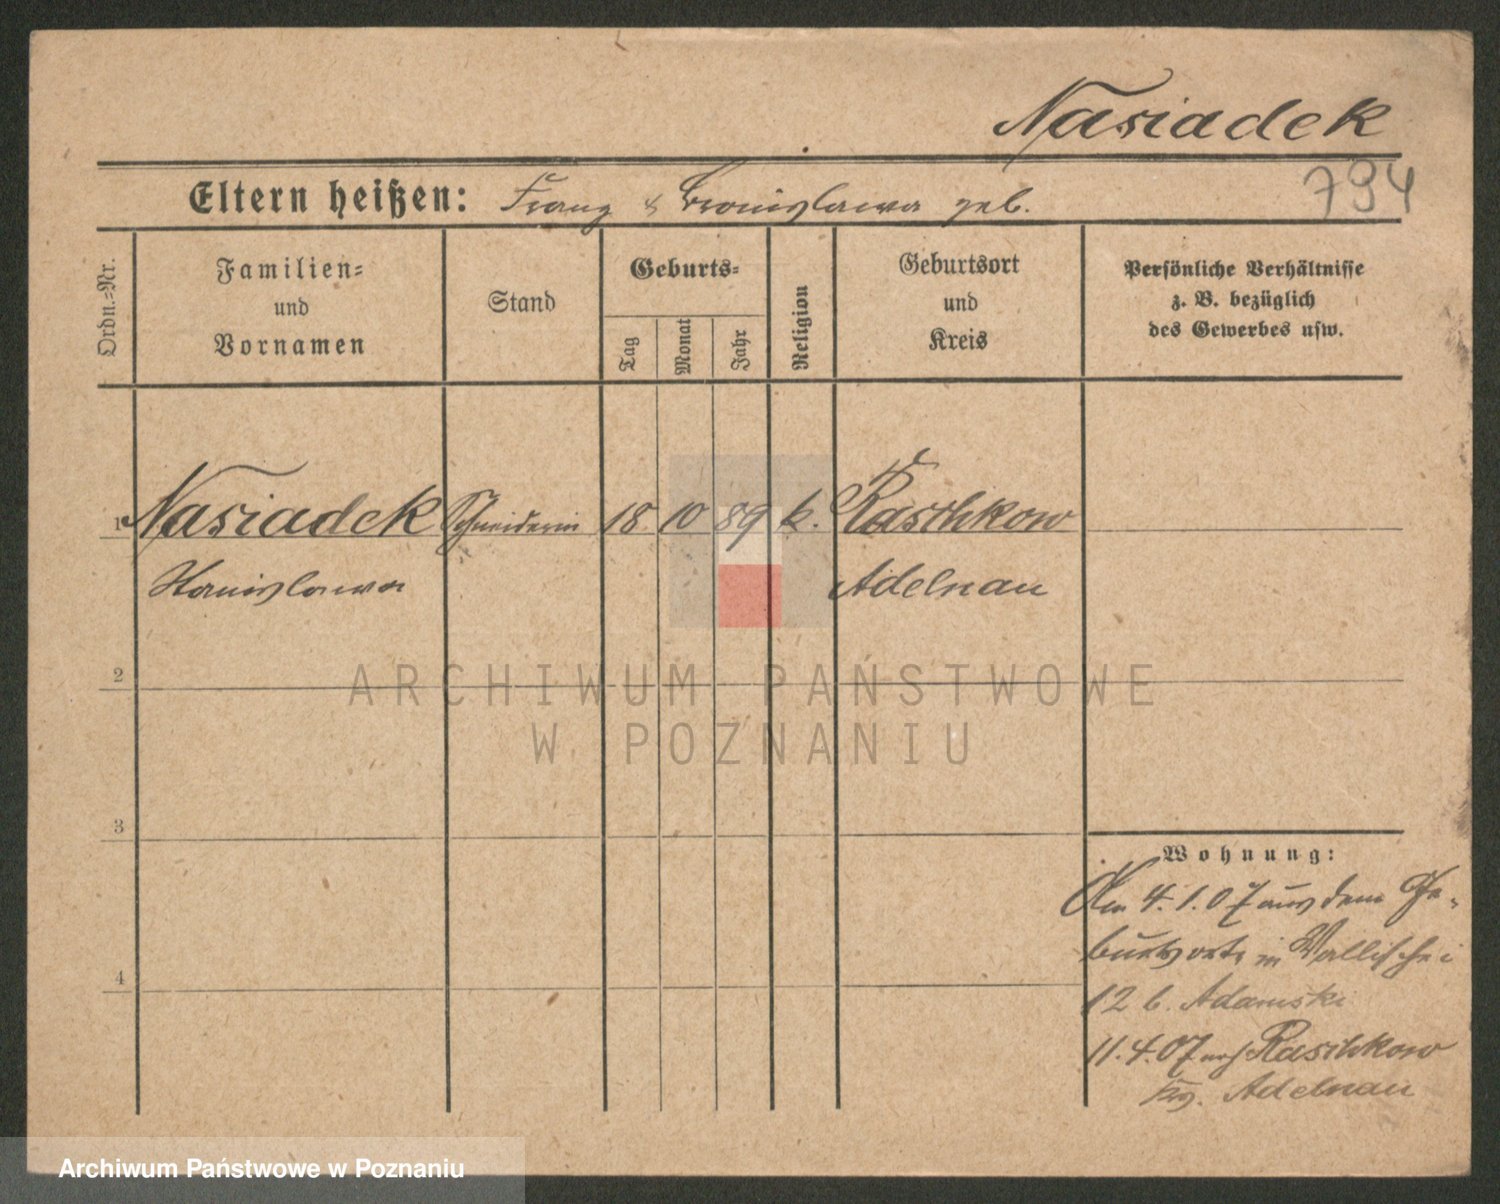 Nasiadek
794
Eltern heißen: Franz & Bronislawa geb.
Ordn.=Nr.
Familien=
und
Vornamen
Stand
Geburts=
Tag
Monat
Jahr
Religion
Geburtsort
und
Kreis
Persönliche Verhältnisse
z. B. bezüglich
des Gewerbes usw.
1 Nasiadek Schneiderin 18 10 89 k. Raschkow
Stanislawa Adelnau
2
3
4
Wohnung:
Am 4.1.07 aus dem Ge-
burtsorte in Wallischei
12 b. Adamski
11.4.07 nach Raschkow
Krs. Adelnau
ARCHIWUM PAŃSTWOWE
W POZNANIU
Archiwum Państwowe w Poznaniu